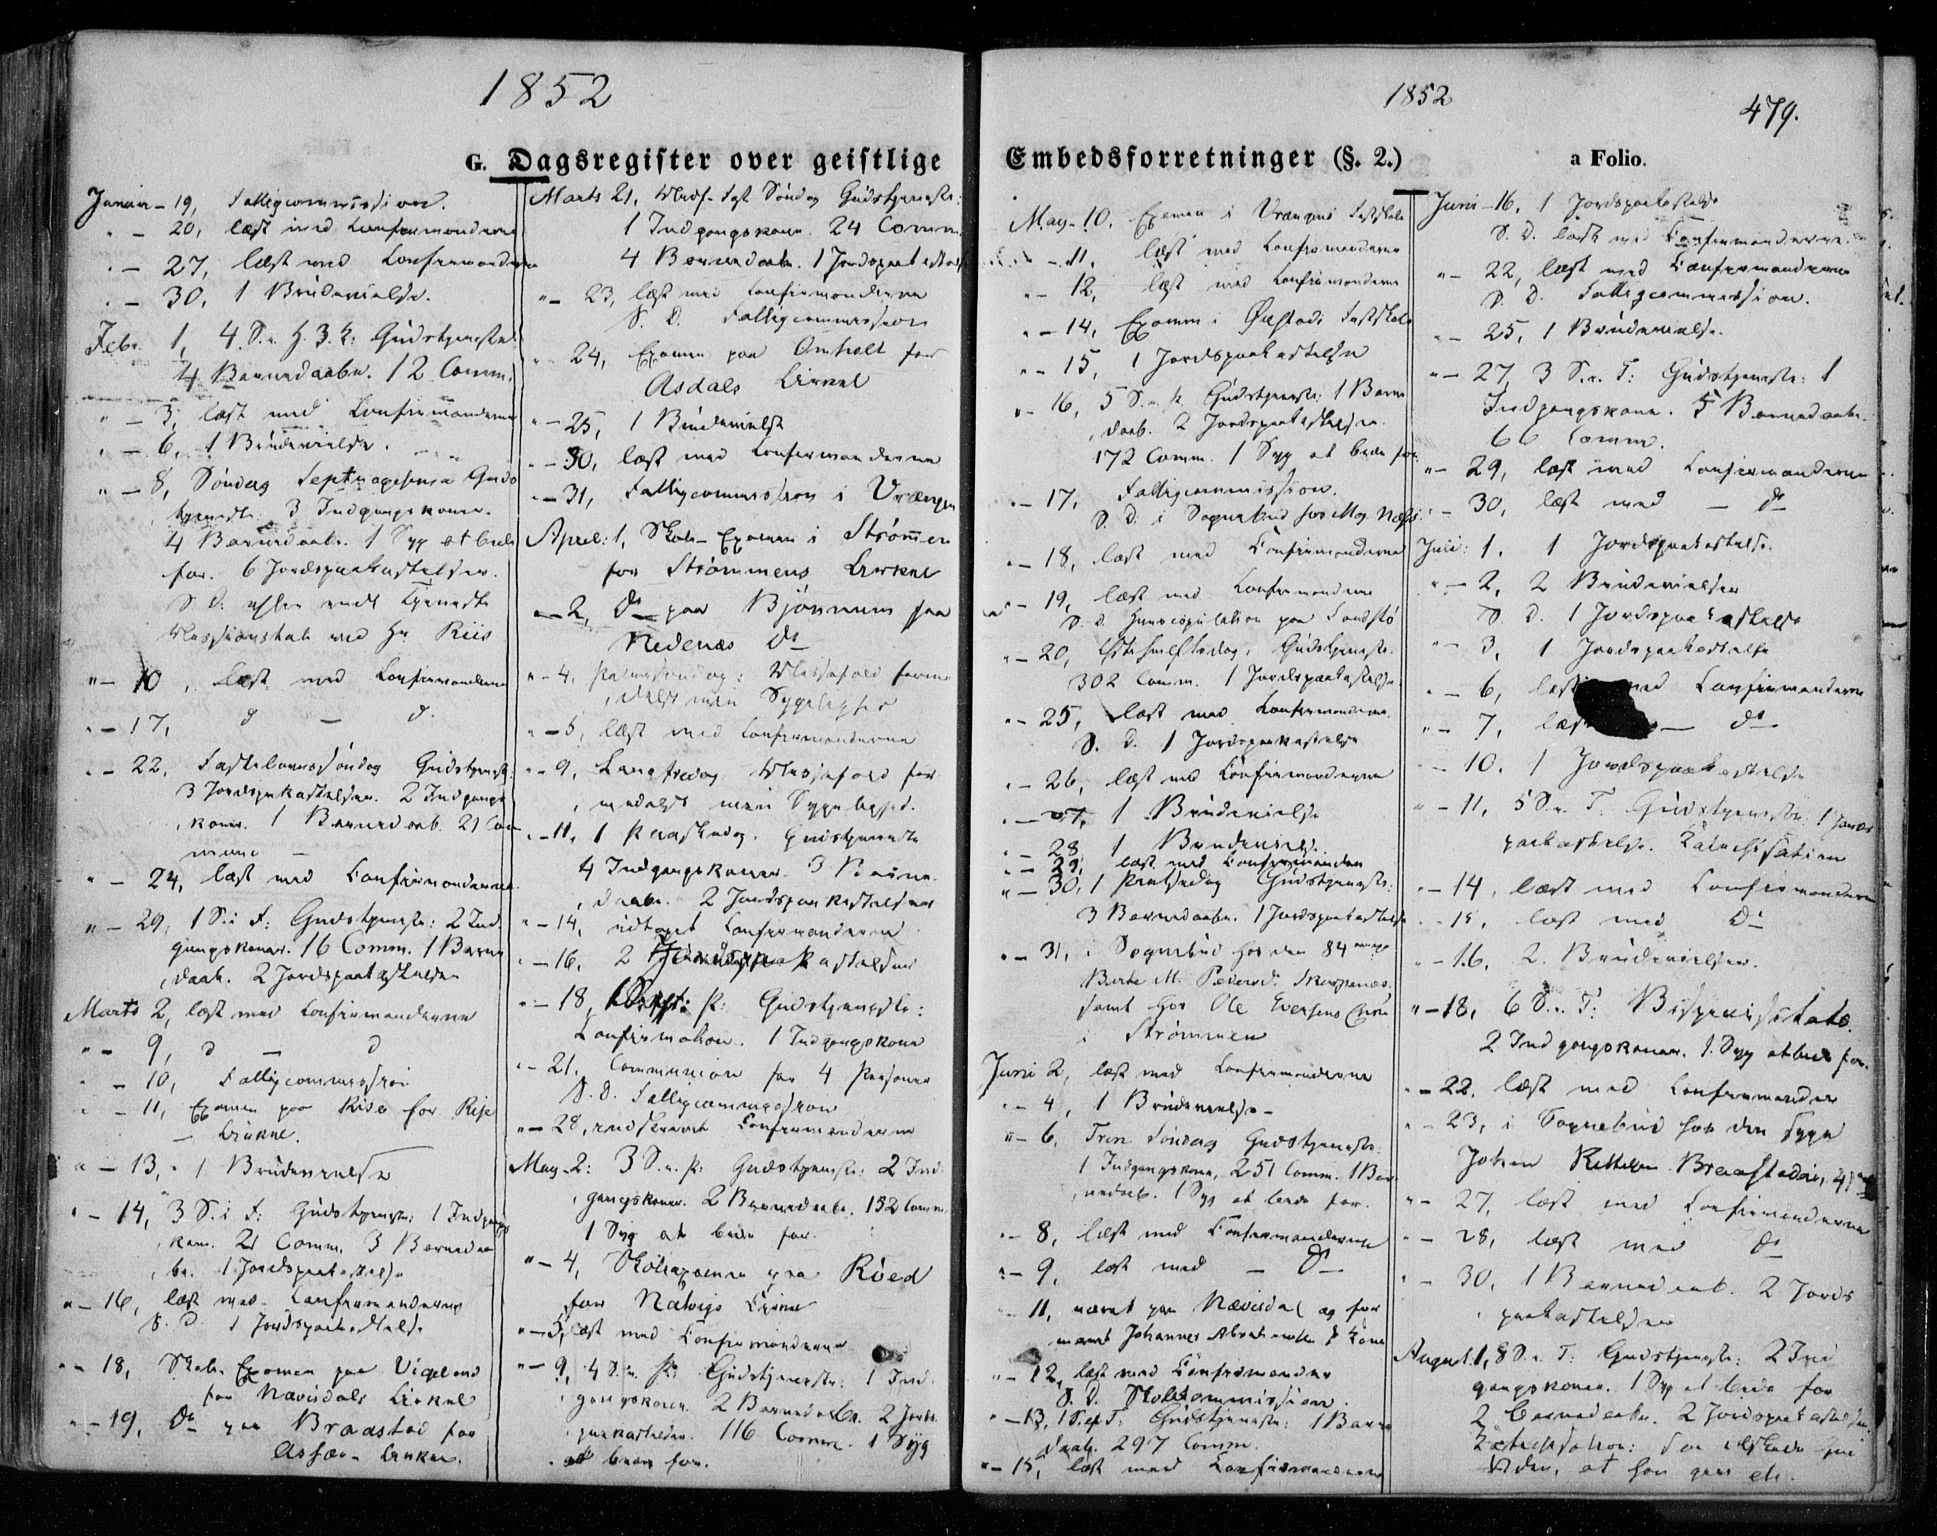 1852
G. Dagsregister over geistlige
Januar - 19, Fattigcommission.
" - 20, læst med Confirmanderne
" - 27, læst med Confirmanderne
" - 30, 1 Brudevielse.
Febr. 1, 4 S. e. H. 3 K: Gudstjeneste
4 Barnedaabe. 12 Comm.
" - 3, læst med Confirmanderne
" - 6, 1 Brudevielse.
" - 8, Søndag Septuagesima Guds
tjeneste. 3 Indgangskoner.
4 Barnedaabe. 1 Syg at bede
for. 6 Jordspaakastelser.
S. D. efter endt Tjeneste
med Hr Riis
" - 10, læst med Confirmanderne
" - 17, d - d.
" - 22, Fastelavnssøndag Gudstjeneste:
3 Jordspaakastelser. 2 Indgangs
koner. 1 Barnedaab. 21 Com
mune -
" - 24, læst med Confirmanderne
" - 29, 1 S. i F: Gudstjeneste: 2 Ind
gangskoner. 16 Comm. 1 Barne
daab. 2 Jordspaakastelser
Marts 2, læst med Confirmanderne
" - 9, d - d
" - 10, Fattigcommission
" - 11, Examen paa Rise for Rise
- Cirkel.
" - 13, 1 Brudevielse
" - 14, 3 S. i F: Gudstjeneste: 1 Indgangs
kone. 21 Comm. 3 Barnedaa
be. 1 Jordspaakastelse
" - 16, læst med Confirmanderne
S. D. 1 Jordspaakastelse
" - 18, Skole-Examen paa Vigeland
for Nævisdals Cirkel
" - 19, Do paa Braastad for
Assæv- Cirkel.
Marts 21, Midf. Fast Søndag Gudstjeneste:
1 Indgangskone. 24 Comm.
4 Barnedaabe. 1 Jordspaakastelse
" - 23, læst med Confirmanderne
S. D. Fattigcommission
" - 24, Examen paa Omholt for
Asdals Cirkel
" - 25, 1 Brudevielse
" - 30, læst med Confirmanderne
" - 31, Fattigcommission i Vrængen
April: 1, Skole-Examen i Strømmen
for Strømmens Cirkel
" - 2, Do paa Bjønnum for
Nedenæs Do
" - 4, Palmesøndag: Messefald forme
delst min Sygelighed
" - 5, læst med Confirmanderne
" - 9, Langfredag Messefald for
medelst min Sygelighed.
" - 11, 1 Paaskedag. Gudstjeneste
4 Indgangskoner. 3 Barne
daabe. 2 Jordspaakastelser
" - 14, udtaget Confirmanderne
" - 16, 2 Jordspaakastelser
" - 18, 1 S. e. P: Gudstjeneste:
Confirmation. 1 Indgangskone
" - 21, Communion for 4 Personer
S. D. Fattigcommission
" - 28, indskrevet Confirmanderne
May - 2: 3 S. e. P: Gudstjeneste: 2 Ind
gangskoner. 2 Barnedaabe. 152 Comm.
1 Syg at bede for.
" - 4, Skoleexamen paa Røed
for Natvigs Cirkel
" - 5, læst med Confirmanderne
" - 9, 4 S. e. P: Gudstjeneste: 1 Ind
gangskone. 2 Barnedaabe. 2 Jords
paakastelser. 116 Comm. 1 Syg
at bede for.
1852
479.
Embedsforretninger (§. 2.)
a Folio.
May - 10, Examen i Vrængens Fastskole
" - 11, læst med Confirmanderne
" - 12, læst med Confirmanderne
" - 14, Examen i Øiestads Fastskole
" - 15, 1 Jordspaakastelse
" - 16, 5 S. e. P. Gudstjeneste: 1 Barne
daab. 2 Jordspaakastelser.
172 Comm. 1 Syg at bede for
" - 17, Fattigcommission.
S. D. i Sognebud hos
" - 18, læst med Confirmanderne
" - 19, læst med Confirmanderne
S. D. paa Sandstø
" - 20, Christi Himmelfartsdag. Gudstjeneste.
302 Comm. 1 Jordspaakastelse
" - 25, læst med Confirmanderne
S. D. 1 Jordspaakastelse
" - 26, læst med Confirmanderne
" - 27, 1 Brudevielse
" - 28 1 Brudevielse.
" - 29, læst med Confirmanden
" - 30, 1 Pintsedag Gudstjeneste:
3 Barnedaabe. 1 Jordspaakastelse
" - 31, i Sognebud hos den 84 aarige
Berte M. Pedersd.
samt hos Ole Evensens Enke
i Strømmen
Juni 2, læst med Confirmanderne
" - 4, 1 Brudevielse -
" - 6, Trin. Søndag Gudstjeneste:
1 Indgangskone, 251 Comm. 1 Bar
nedaab. 1 Syg at bede for.
" - 8, læst med Confirmanderne
" - 9, læst med - Do
" - 11, været paa Nævisdal og for
manet Johannes Abrahamsen & Kone
" - 12, læst med Confirmander
S. D. Skolekommission.
" - 13, 1 S. e. T: Gudstjeneste: 1 Barne
daab. 297 Comm.
" - 15, læst med Confirmanderne
Juni - 16, 1 Jordspaakastelse
S. D. læst med Confirmanderne.
" - 22, læst med Confirmanderne
S. D. Fattigcommission.
" - 25, 1 Brudevielse.
" - 27, 3 S. e. T: Gudstjeneste: 1
Indgangskone. 5 Barnedaabe.
66 Comm.
" - 29, læst med Confirmanderne
" - 30, læst med - Do
Juli: 1. 1 Jordspaakastelse.
" - 2, 2 Brudevielser
S. D. 1 Jordspaakastelse
" - 3, 1 Jordspaakastelse
" - 6, læst med Confirmanderne
" - 7, læst - Do
" - 10. 1 Jordspaakastelse
" - 11, 5 S. e. T. Gudstjeneste: 1 Jords
paakastelse. Katechisation
" - 14, læst med Confirmanderne
" - 15, læst med Do
" - 16, 2 Brudevielser.
" - 18, 6 S. e. T: Bispevisitats.
2 Indgangskoner. 1 Syg at bede for.
" - 22. læst med Confirmander
" - 23, i Sognebud hos den syge
Johan Kittelsen Braastadei,
" - 27, læst med Confirmanderne
" - 28, læst med Do
" - 30, 1 Barnedaab. 2 Jords
paakastelser
August: 1, 8 S. e. T: Gudstjeneste: 2 Ind
gangskoner. 1 Syg at bede for
2 Barnedaabe. 2 Jordspaakastelser.
Katechisation:
at han